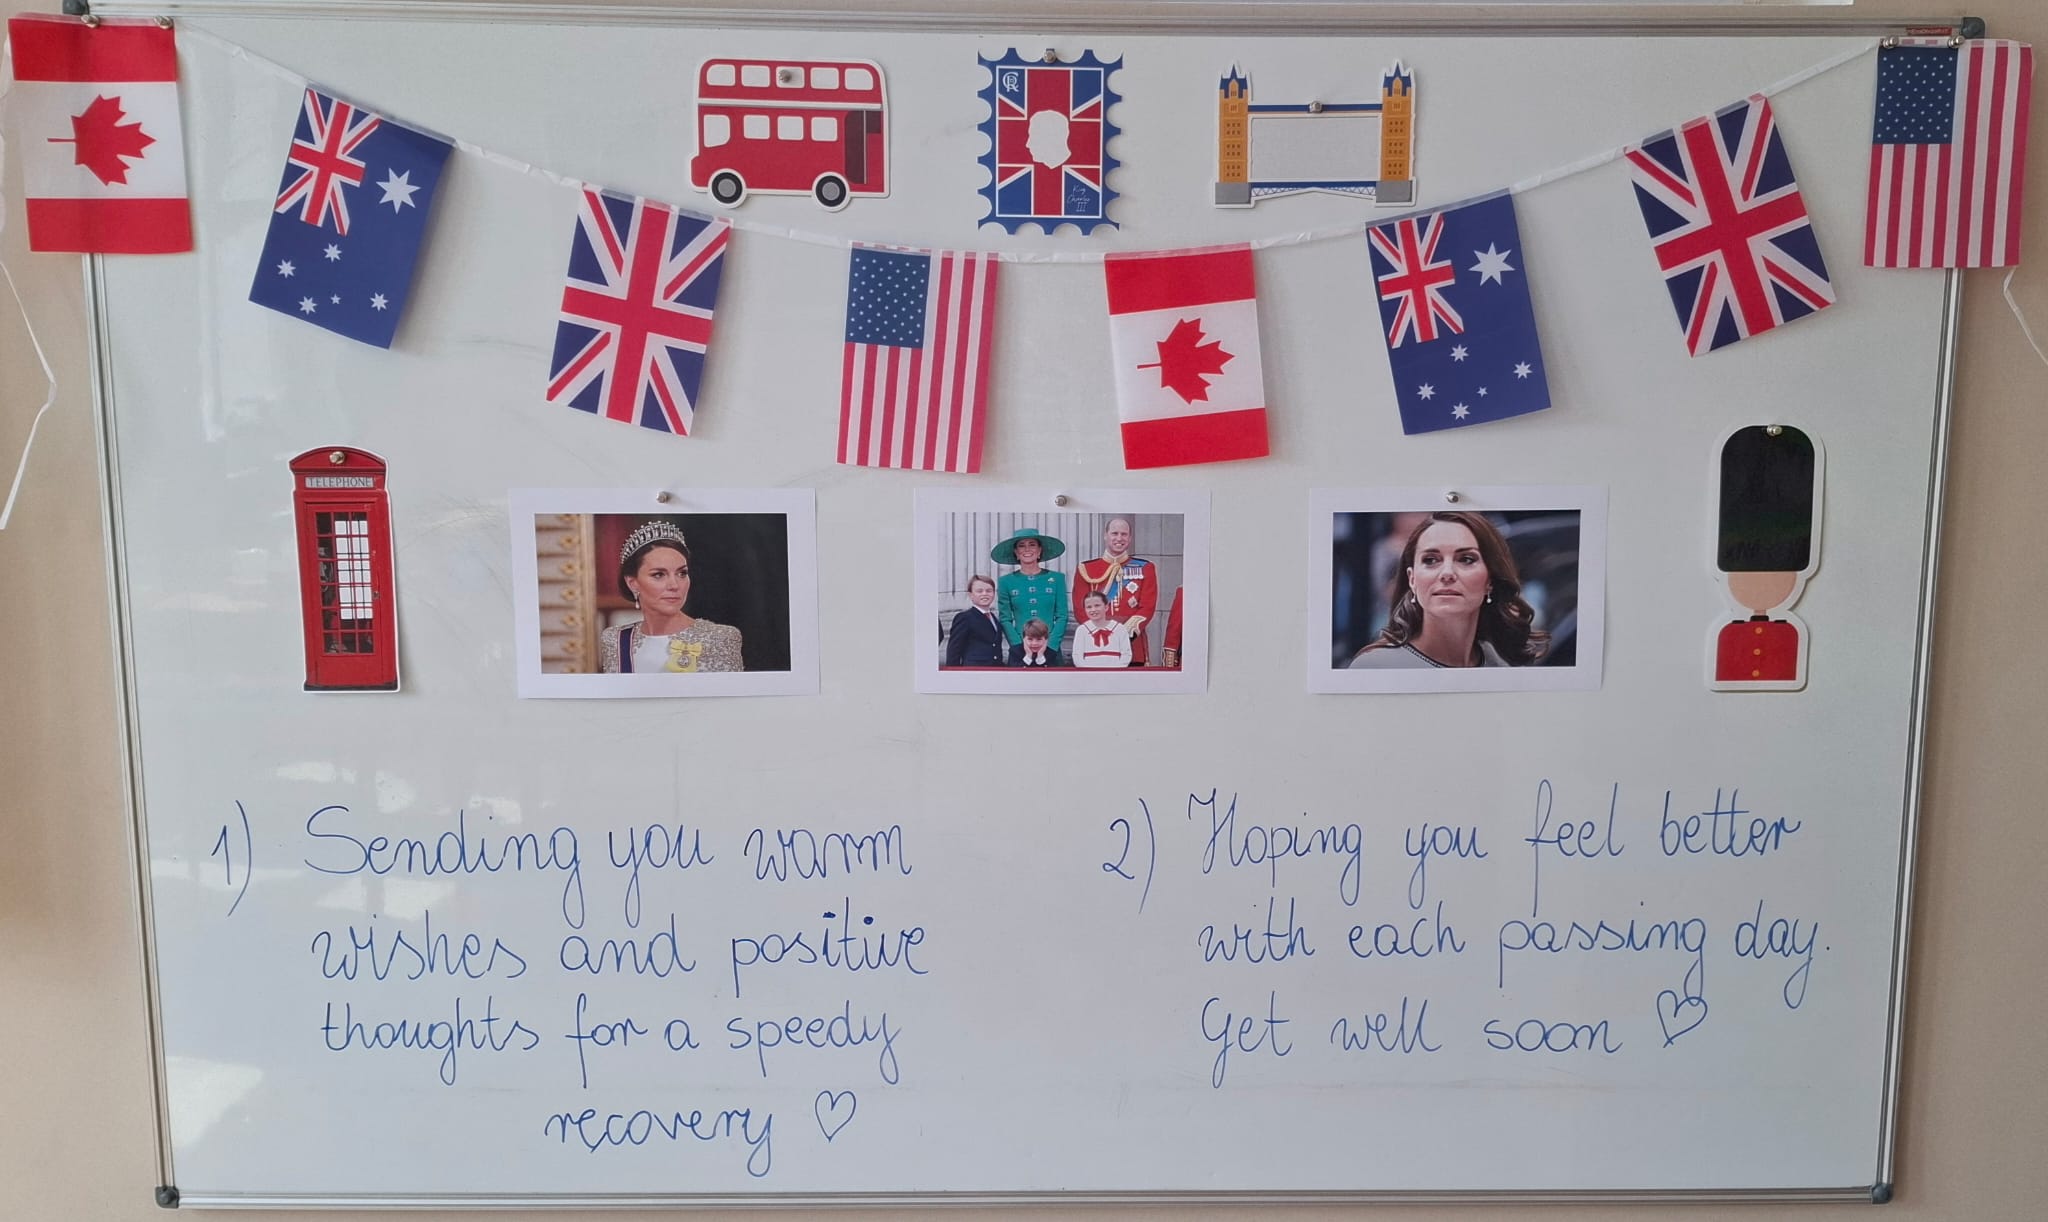 King
Charles
III
TELEPHONE
1) Sending you warm
wishes and positive
thoughts for a speedy
recovery ♡
2) Hoping you feel better
with each passing day.
Get well soon ♡